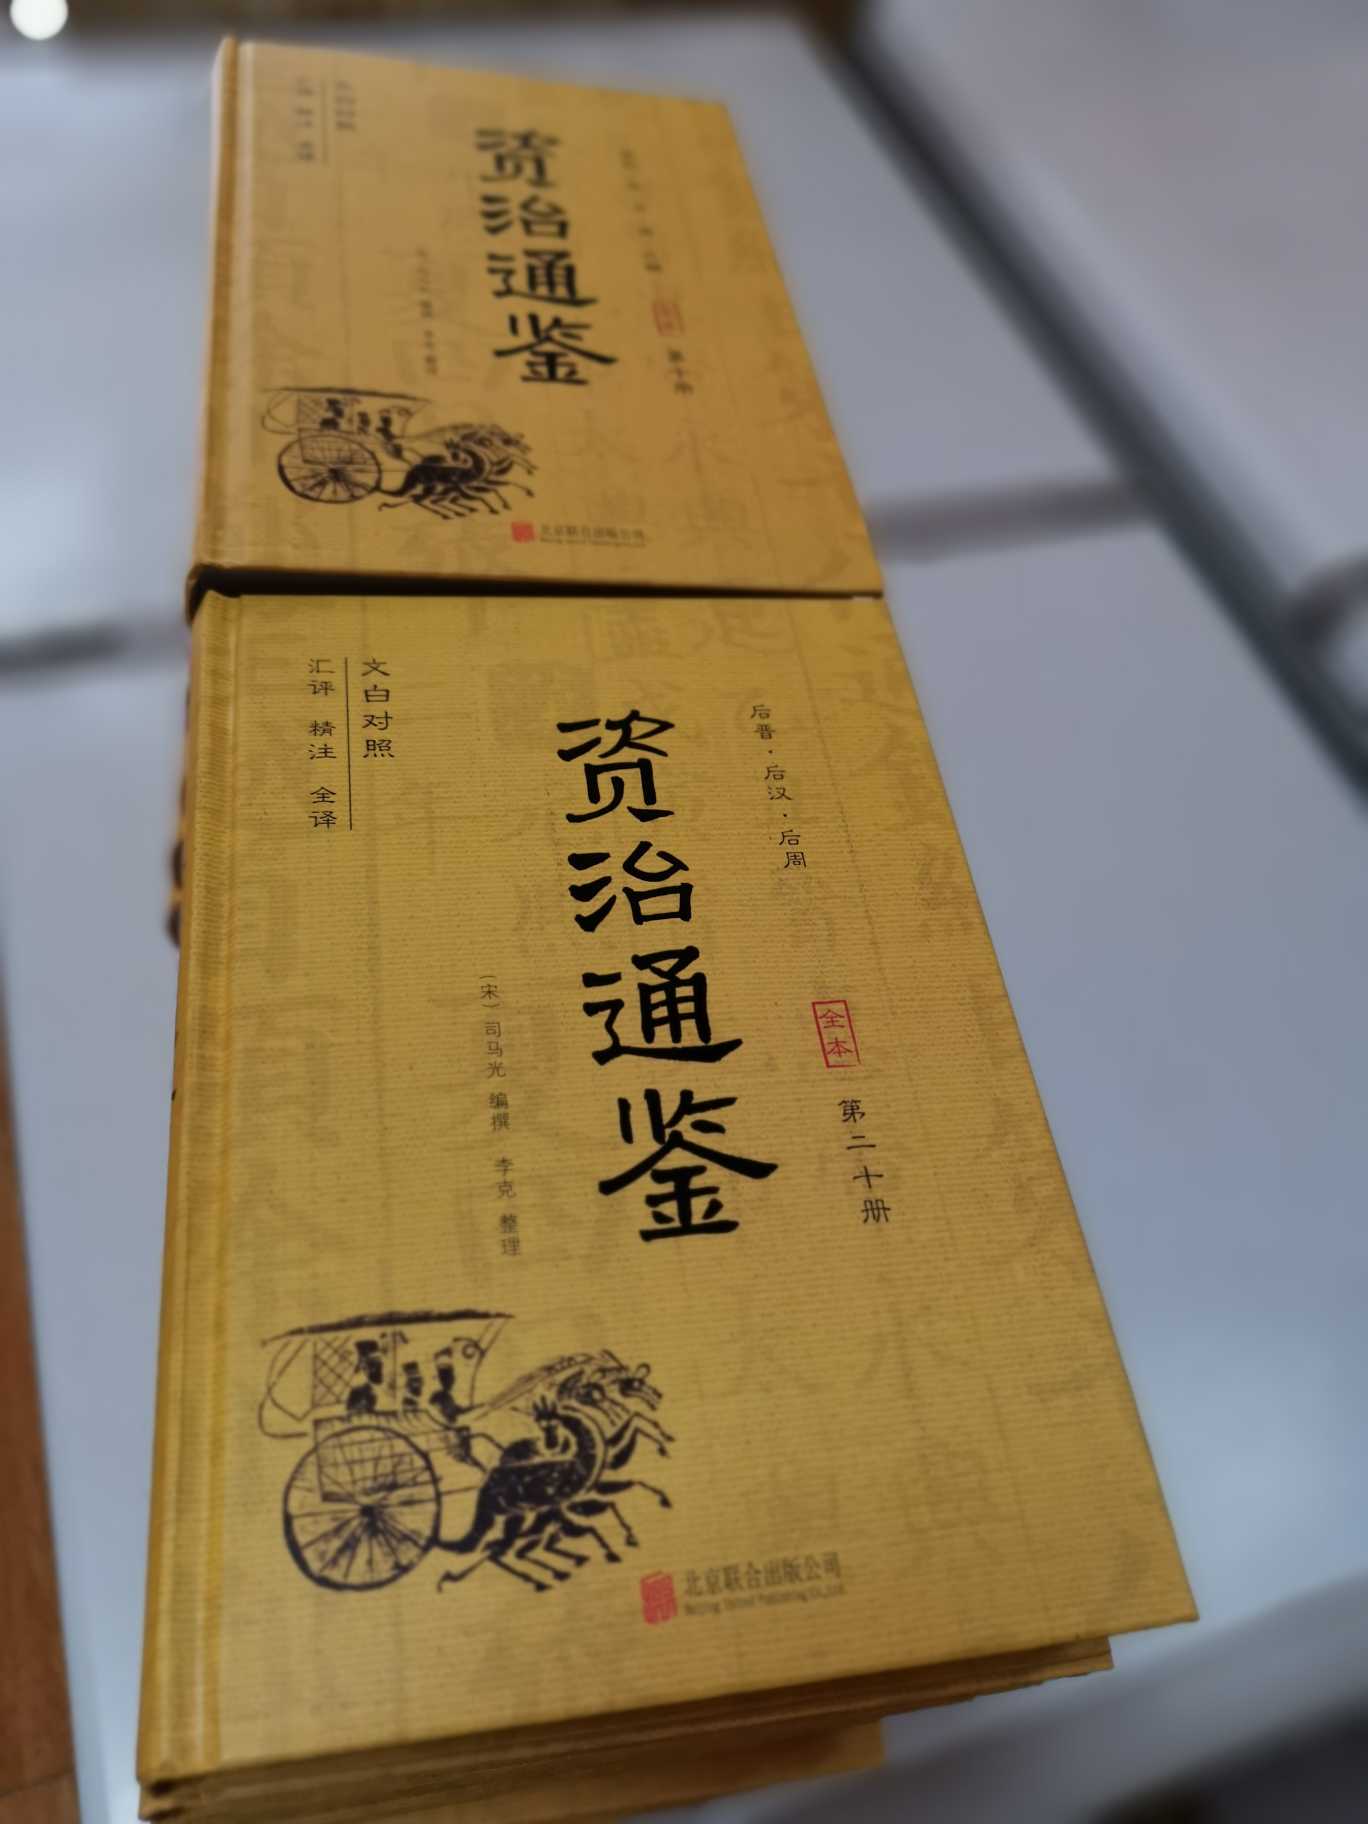 资治通鉴
第十册
北京联合出版公司
文白对照
汇评 精注 全译
资治通鉴
后晋·后汉·后周
全本
第二十册
(宋)司马光 编撰 李克 整理
北京联合出版公司
Beijing United Publishing Co.,Ltd.